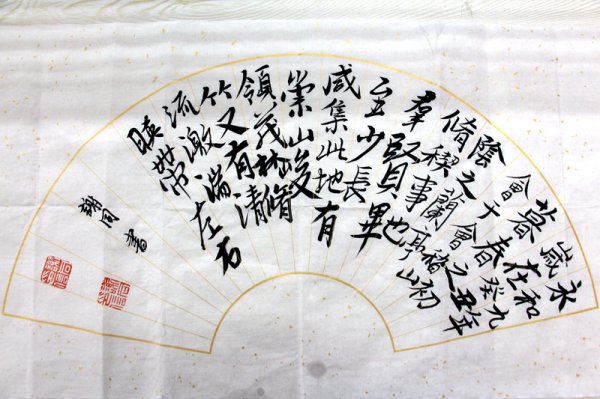 永和九年
歲在癸丑
暮春之初
會于會稽山
陰之蘭亭
脩禊事也
羣賢畢
至少長
咸集此地有
崇山峻
領茂林脩
竹又有清
流激湍
暎帶左右
書